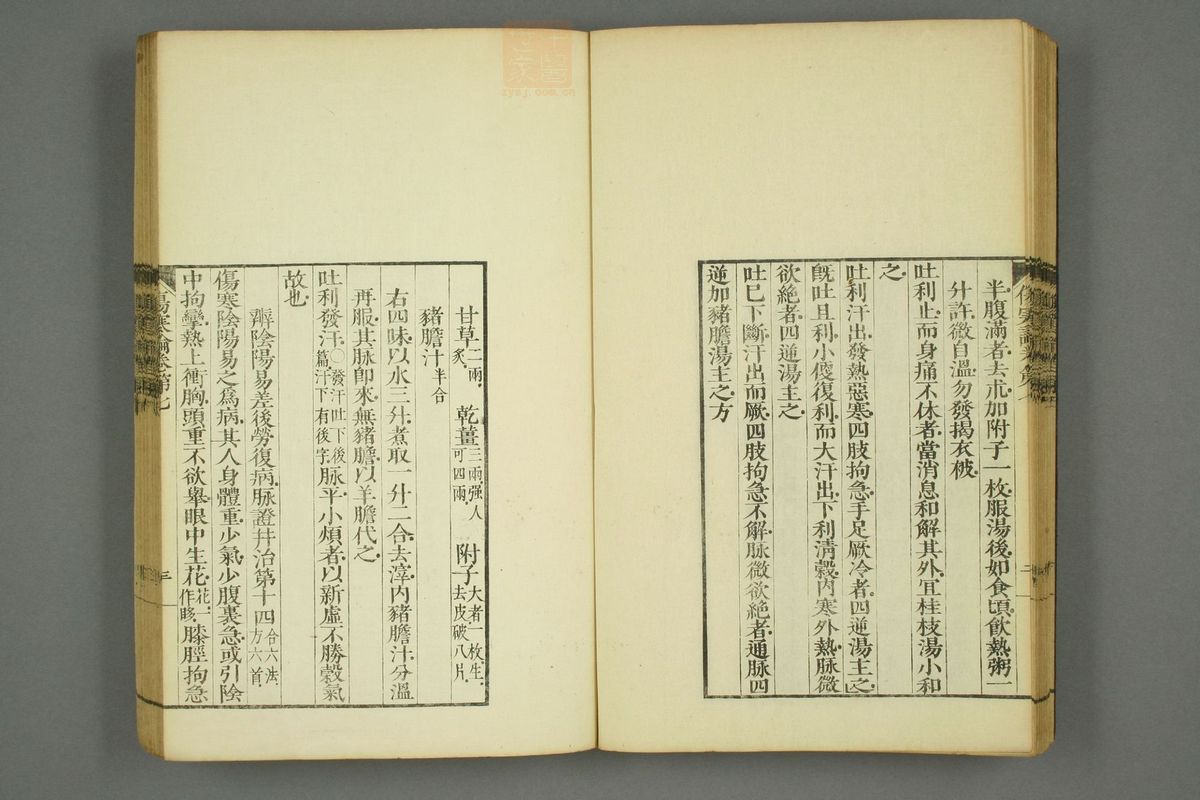 半腹滿者去朮加附子一枚服湯後如食頃飲熱粥一
升許微自溫勿發揭衣被
吐利止而身痛不休者當消息和解其外宜桂枝湯小和
之
吐利汗出發熱惡寒四肢拘急手足厥冷者四逆湯主之
既吐且利小復復利而大汗出下利清穀內寒外熱脉微
欲絕者四逆湯主之
吐已下斷汗出而厥四肢拘急不解脉微欲絕者通脉四
逆加豬膽湯主之方
甘草二兩炙 乾薑三兩强人可四兩 附子大者一枚生去皮破八片
豬膽汁半合
右四味以水三升煮取一升二合去滓內豬膽汁分溫
再服其脉即來無豬膽以羊膽代之
吐利發汗〇發汗吐下後篇汗下有後字脉平小煩者以新虛不勝穀氣
故也
辨陰陽易差後勞復病脉證并治第十四合六法方六首
傷寒陰陽易之爲病其人身體重少氣少腹裏急或引陰
中拘攣熱上衝胸頭重不欲舉眼中生花花一作眵膝脛拘急
傷寒論卷第七
三
zysj.com.cn